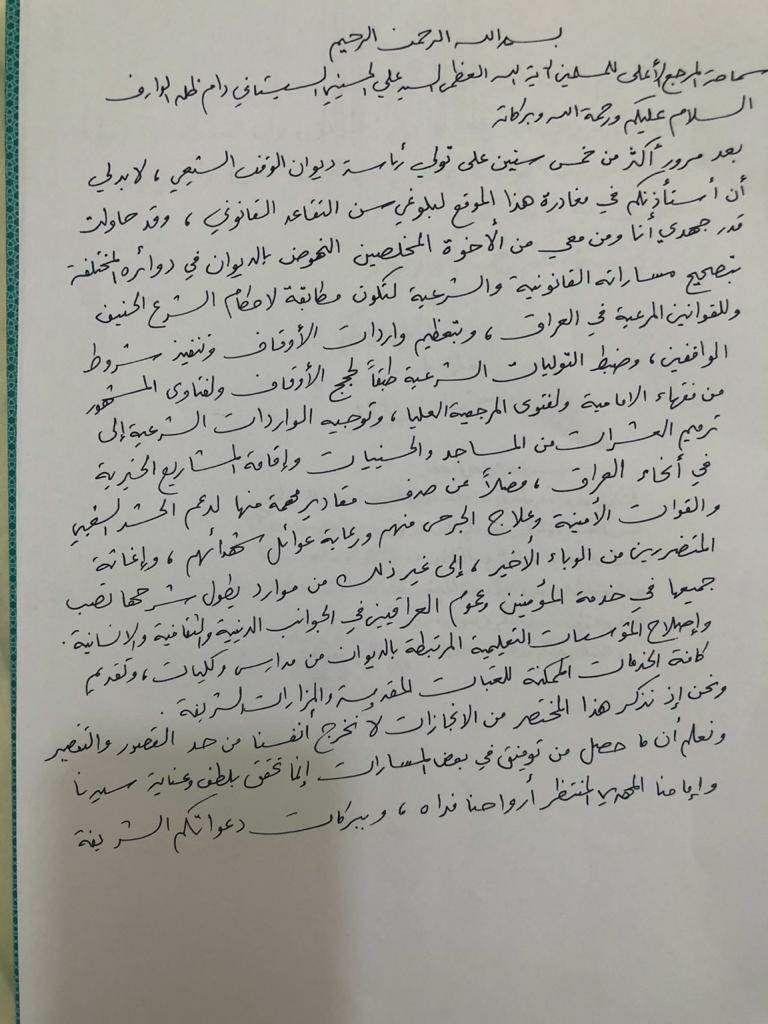 بسم الله الرحمن الرحيم
سماحة المرجع الأعلى للمسلمين آية الله العظمى السيد علي الحسيني السيستاني دام ظله الوارف
السلام عليكم ورحمة الله وبركاته
بعد مرور أكثر من خمس سنين على تولي رئاسة ديوان الوقف الشيعي ، لا بد لي
أن أستأذنكم في مغادرة هذا الموقع لبلوغي سن التقاعد القانوني ، وقد حاولت
قدر جهدي أنا ومن معي من الأخوة المخلصين النهوض بالديوان في دوائره المختلفة
بتصحيح مساراته القانونية والشرعية لتكون مطابقة لاحكام الشرع الحنيف
وللقوانين المرعية في العراق ، وبتعظيم واردات الأوقاف وتنفيذ شروط
الواقفين ، وضبط التوليات الشرعية طبقاً لحجج الأوقاف ولفتاوى المشهور
من فقهاء الامامية ولفتوى المرجعية العليا ، وتوجيه الواردات الشرعية إلى
ترميم العشرات من المساجد والحسينيات وإقامة المشاريع الخيرية
في أنحاء العراق ، فضلاً عن صرف مقادير مهمة منها لدعم الحشد الشعبي
والقوات الأمنية وعلاج الجرحى منهم ورعاية عوائل شهدائهم ، وإغاثة
المتضررين من الوباء الأخير ، إلى غير ذلك من موارد يطول شرحها تصب
جميعها في خدمة المؤمنين وعموم العراقيين في الجوانب الدينية والثقافية والانسانية .
وإصلاح المؤسسات التعليمية المرتبطة بالديوان من مدارس وكليات ، وتقديم
كافة الخدمات الممكنة للعتبات المقدسة والمزارات الشريفة .
ونحن إذ نذكر هذا المختصر من الانجازات لا نخرج أنفسنا من حد القصور والتقصير
ونعلم أن ما حصل من توفيق في بعض المسارات إنما تحقق بلطف وعناية سيدنا
وإمامنا المهدي المنتظر أرواحنا فداه ، وببركات دعواتكم الشريفة